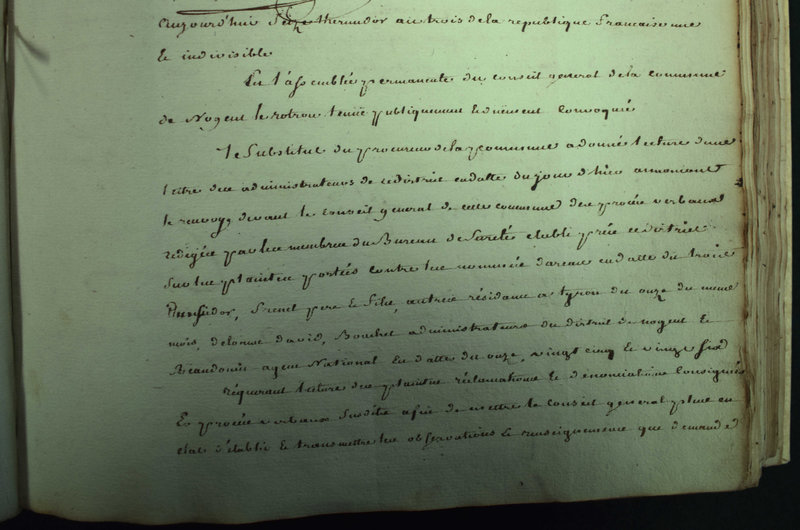 aujourd'hui seize thermidor an trois de la republique francaise une
et indivisible
En l'assemblée permanente du conseil general de la commune
de Nogent le rotrou tenüe publiquement et duement convoqué
le substitut du procureur de la commune a donnée lecture d'une
lettre des administrateurs de ce district en datte du jour d'hier annoncant
le renvoy devant le conseil general de cette commune des procés verbaux
redigée par les membres du Bureau de Sureté etabli prés ce district
sur les plaintes portées contre les nommés en datte du trois
thermidor, pere et fils, autres résidans a tyron du onze du meme
mois, delorme david, Bouchet administrateurs du district de nogent et
Beaudouin agent National en dattes du onze, vingt cinq et vingt six
réquerant lecture des plaintes réclamations et denonciations consignés
Es procés verbaux susdits afin de mettre le conseil general plus en
etat d'etablir et transmettre les observations et renseignemens que demande